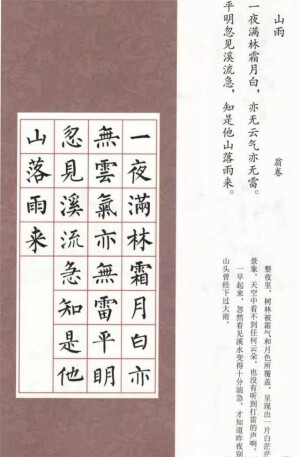 山雨
翁卷
一夜满林霜月白，亦无云气亦无雷。
平明忽见溪流急，知是他山落雨来。
整夜里，树林被霜气和月色所覆盖，呈现出一片白茫茫
景象，天空中看不到任何云朵，也没有听到打雷的声响，
一早起来，忽然看见溪水变得十分湍急，才知道昨夜别
山头曾经下过大雨。
一夜滿林霜月白亦
無雲氣亦無雷平明
忽見溪流急知是他
山落雨来